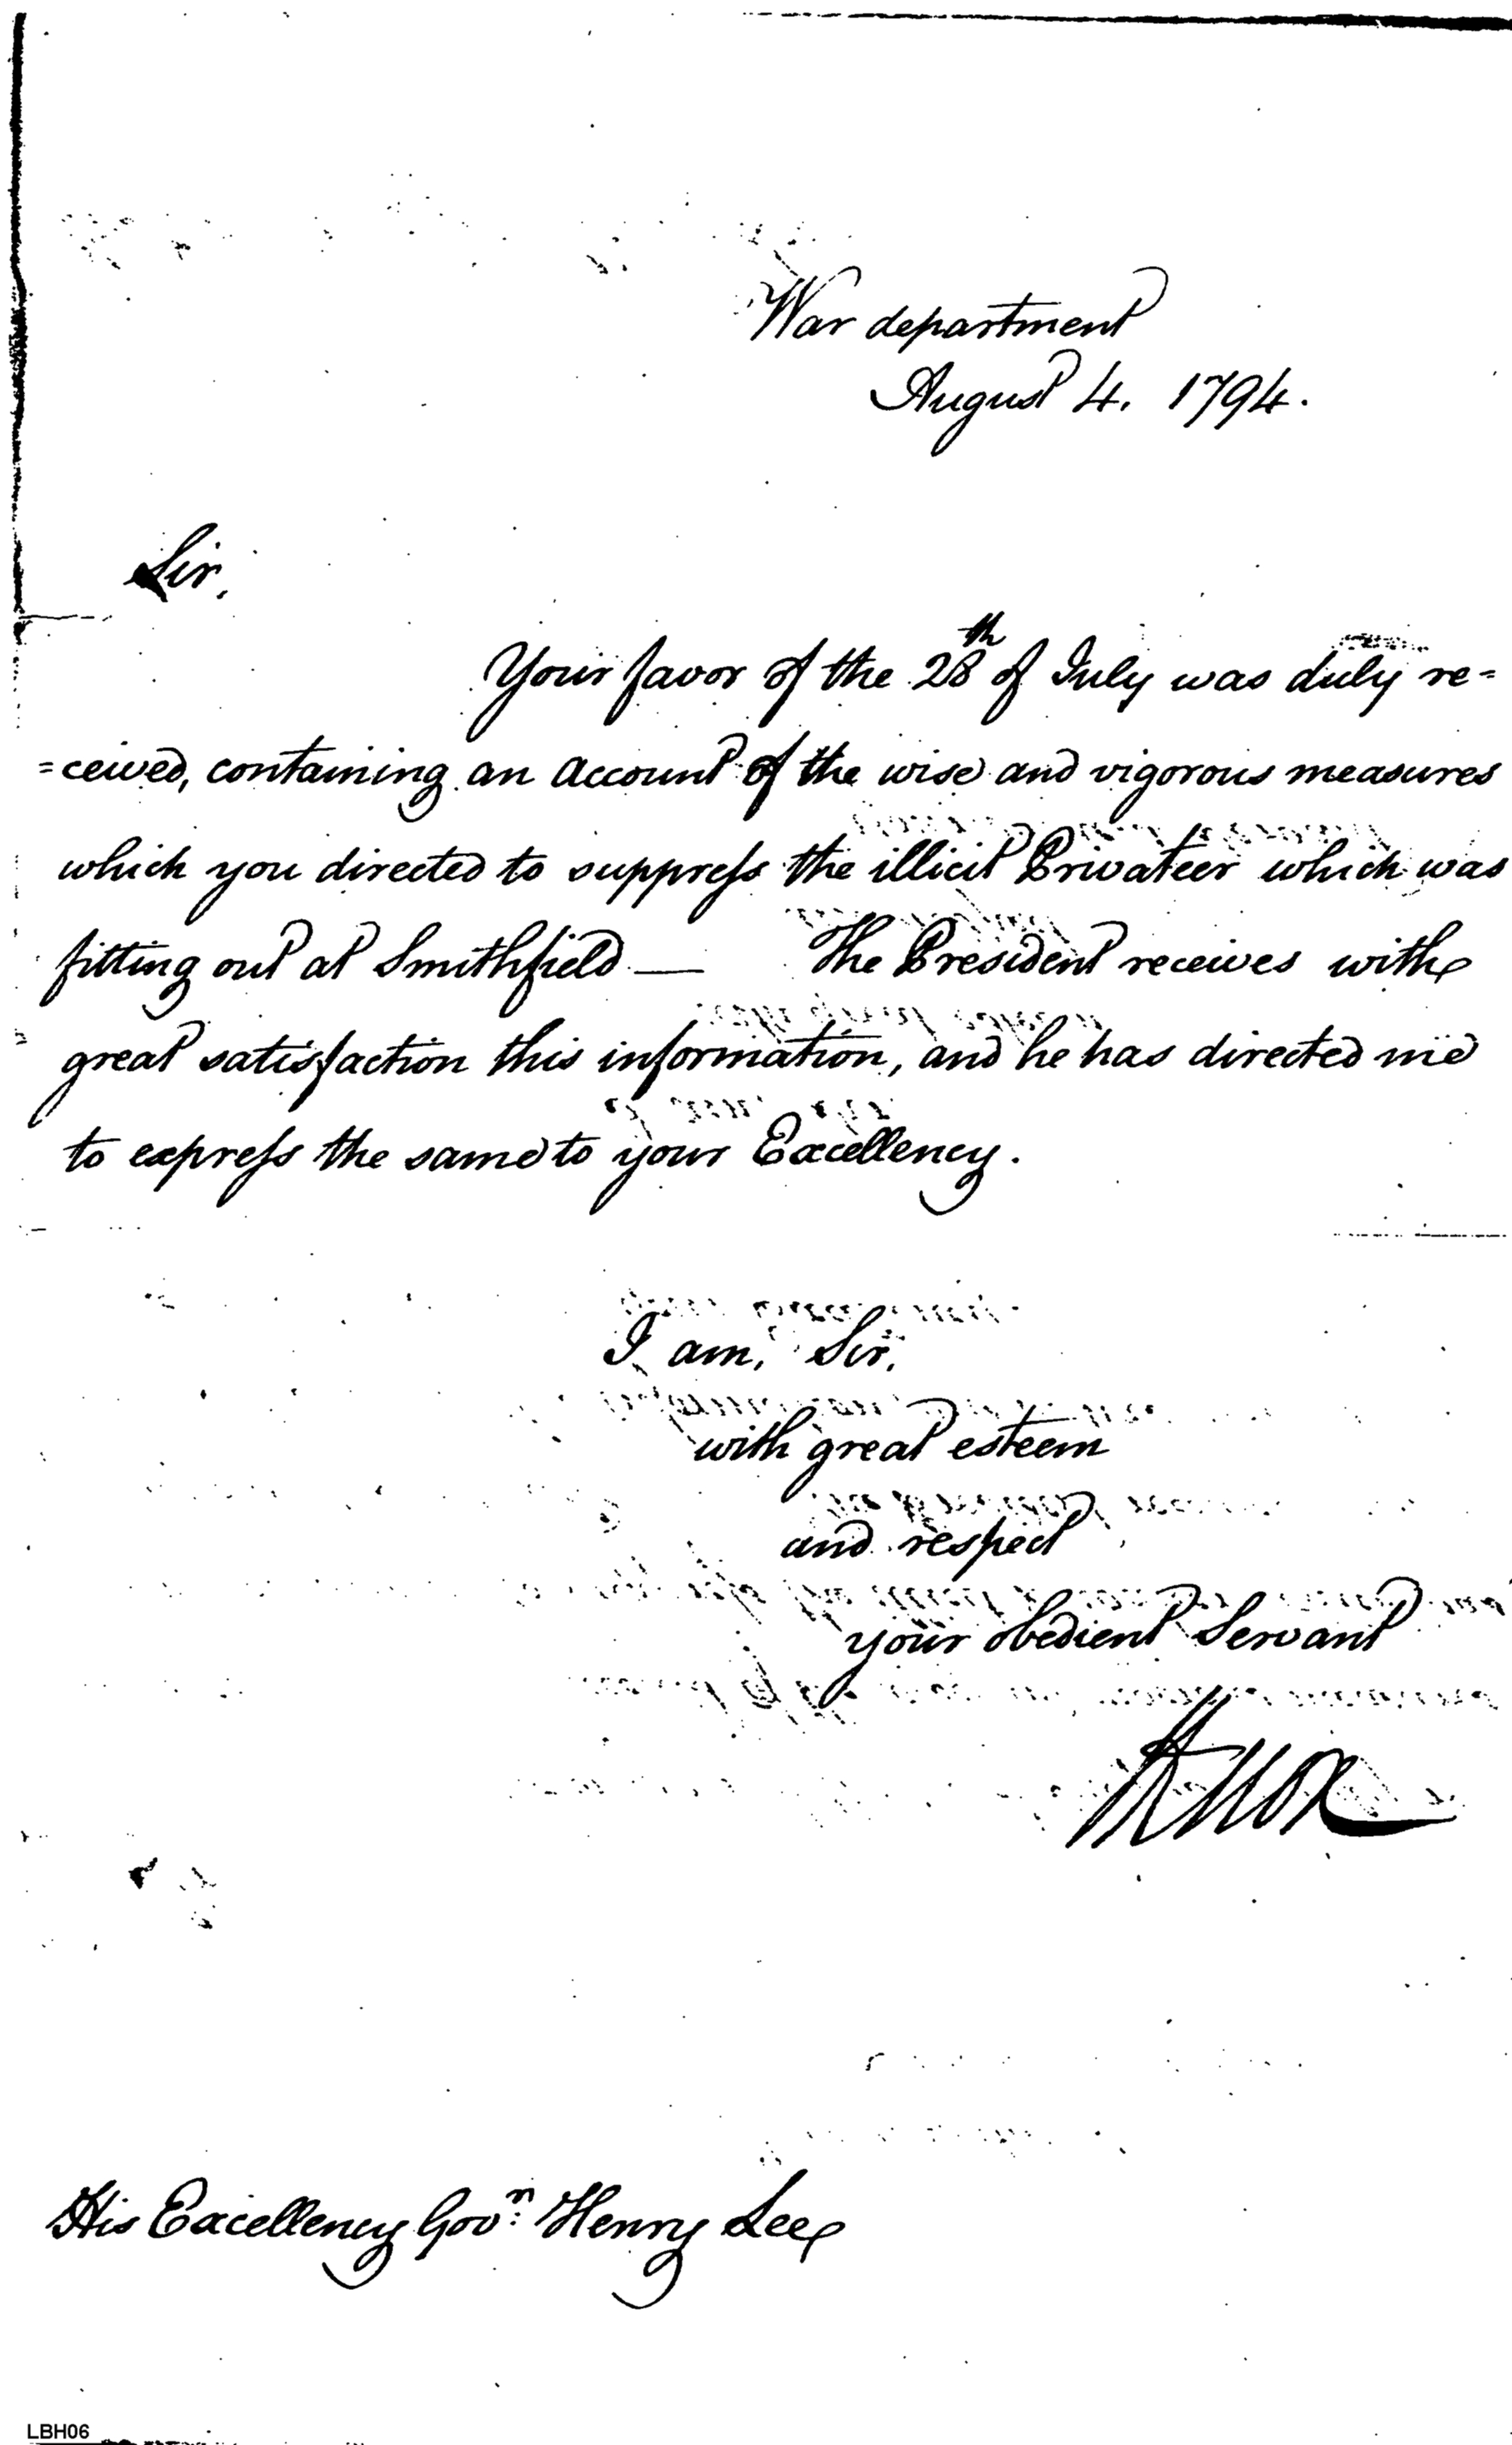 War department
August 4. 1794.
Sir,
Your favor of the 28th of July was duly re=
=ceived, containing an account of the wise and vigorous measures
which you directed to suppress the illicit Privateer which was
fitting out at Smithfield — The President receives with
great satisfaction this information, and he has directed me
to express the same to your Excellency.
I am, Sir,
with great esteem
and respect
your obedient Servant
HKnox
His Excellency Govr: Henry Lee
LBH06